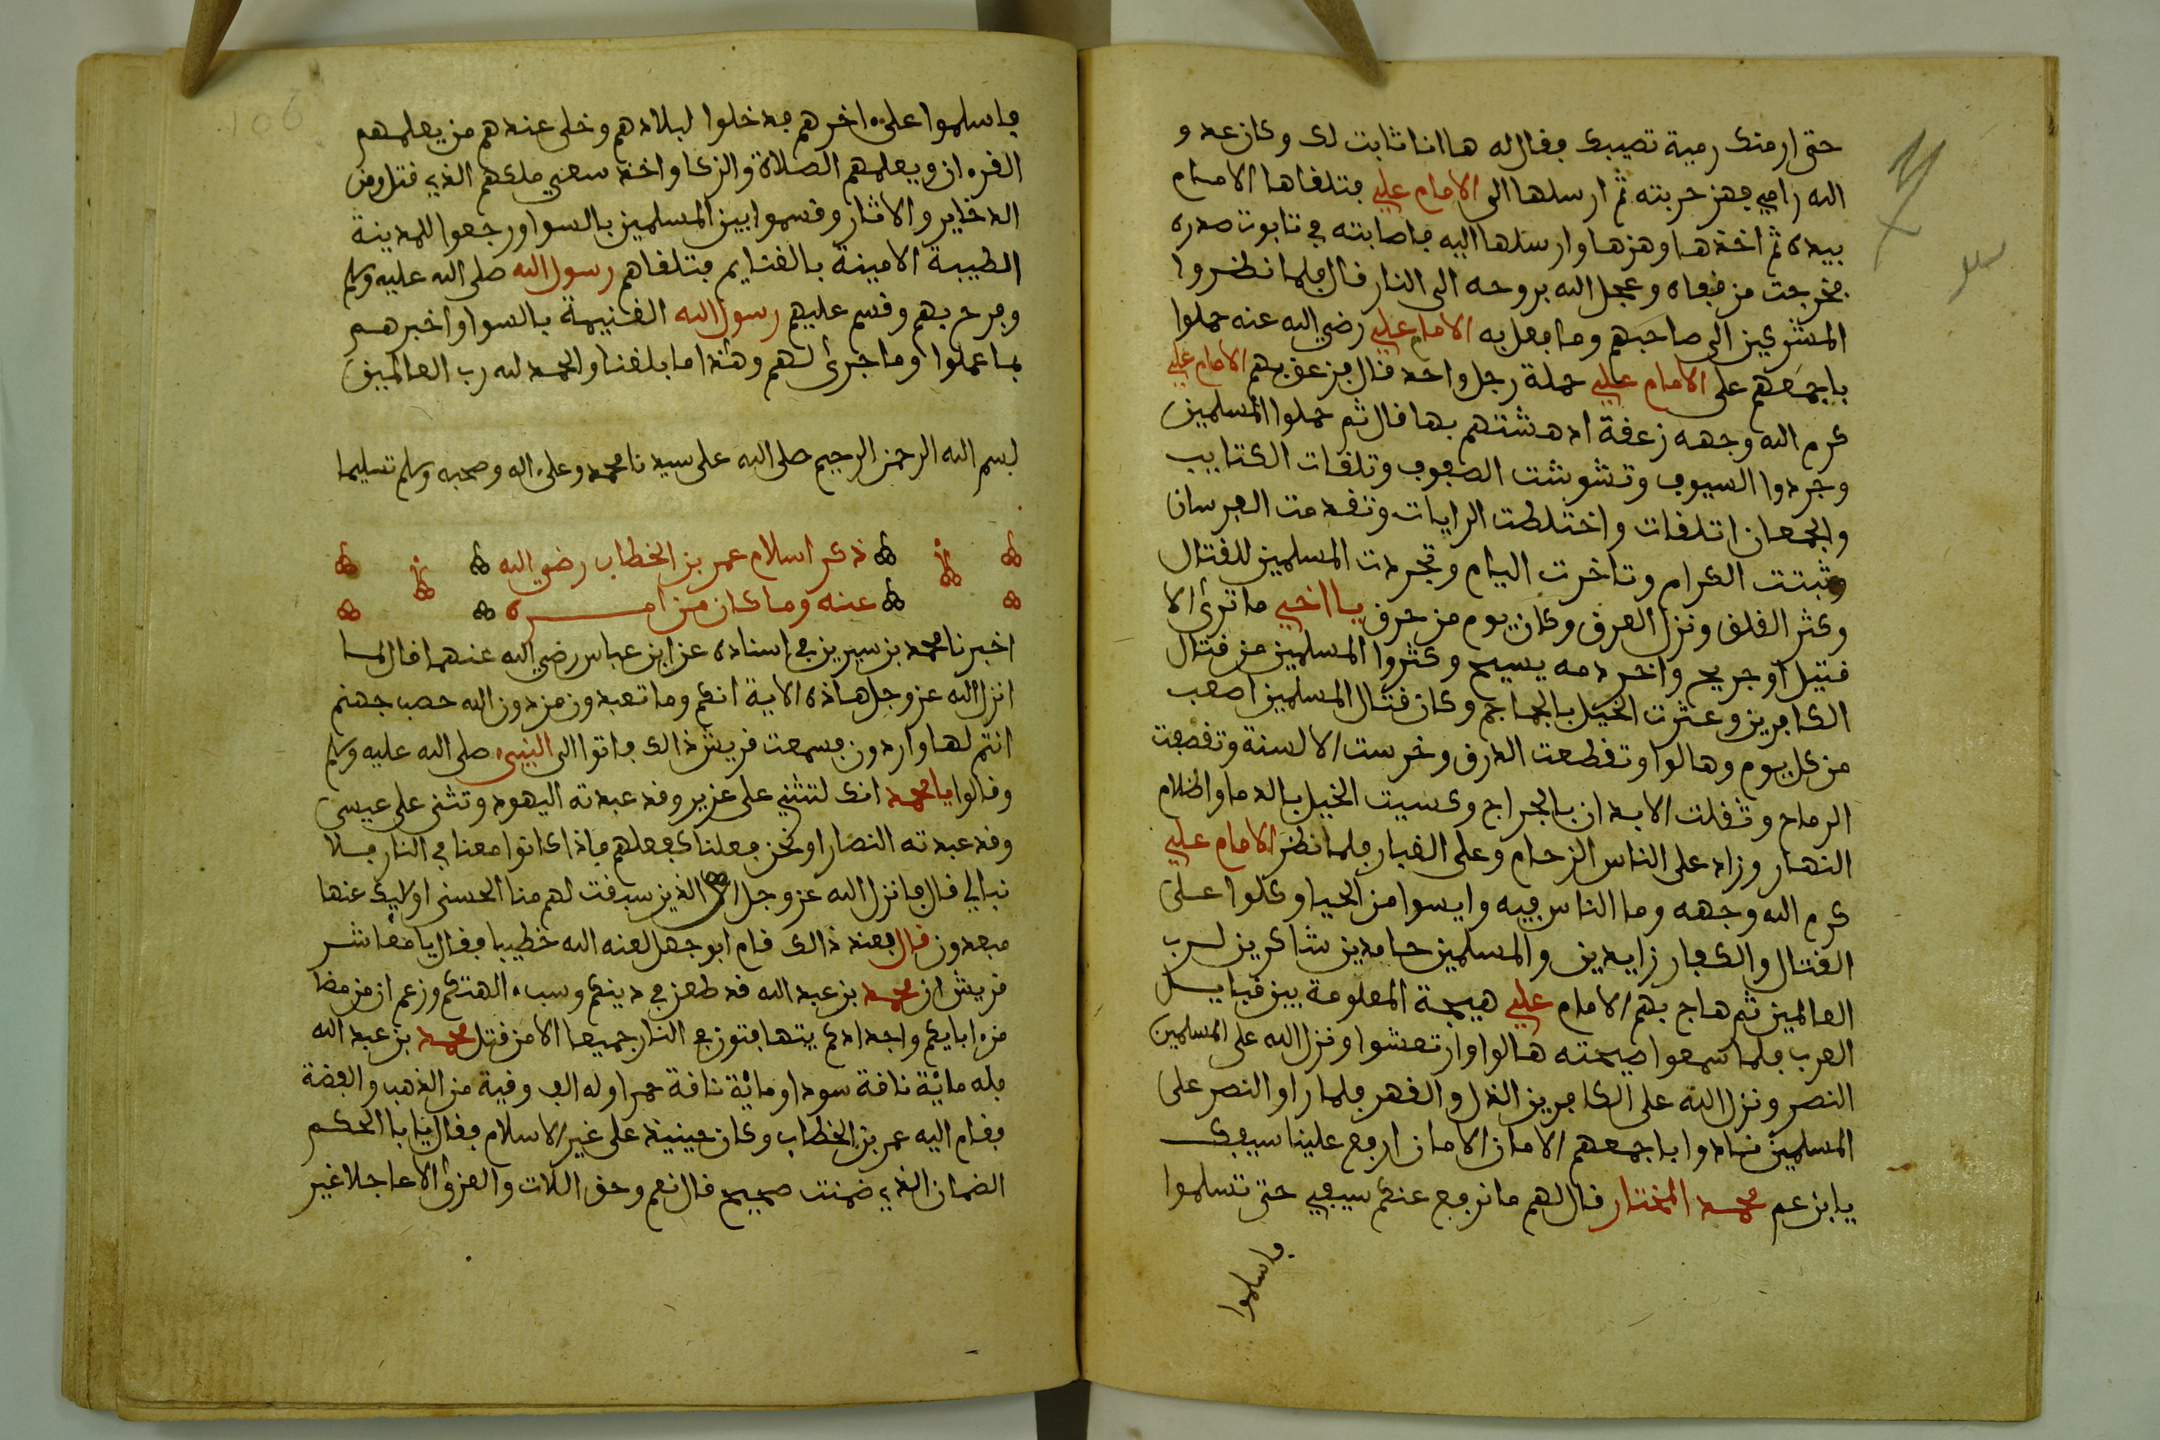 حتى ارمتك رمية تصيبك فقال له ها انا ثابت لك وكان عدو
الله رامي فهز حربته ثم ارسلها الى الامام علي فتلقاها الامام
بيده ثم اخذها وهزها وارسلها اليه فاصابته في تابوت صدره
فخرجت من قفاه وعجل الله بروحه الى النار قال فلما نظروا
المشركين الى صاحبهم وما فعل به الامام علي رضي الله عنه حملوا
باجمعهم على الامام علي حملة رجل واحد قال فزعق بهم الامام علي
كرم الله وجهه زعقة ادهشتهم بها قال ثم حملوا المسلمين
وجردوا السيوف وتشوشت الصفوف وتلقات الكتايب
والجمعان اتلقات واختلطت الرايات وتقدمت الفرسان
وثبتت الكرام وتاخرت اليام وتجردت المسلمين للقتال
وكثر القلق ونزل العرق وكان يوم من حرق يا اخي ما ترى الا
قتيل او جريح واخر دمه يسيح وكثروا المسلمين من قتال
الكافرين وعثرت الخيل بالجماجم وكان قتال المسلمين اصعب
من كل يوم وهالوا وتقطعت الدرق وخرست الالسنة وتقصفت
الرماح وثقلت الابدان بالجراح وكسيت الخيل بالدما واظلام
النهار وزاد على الناس الزحام وعلى الغبار فلما نظر الامام علي
كرم الله وجهه وما الناس فيه وايسوا من الحيا وكلوا على
القتال والكفار زايدين والمسلمين حامدين شاكرين لرب
العالمين ثم هاج بهم الامام علي هيجة المعلومة بين قبايل
العرب فلما سمعوا صيحته هالوا وارتعشوا ونزل الله على المسلمين
النصر ونزل الله على الكافرين الذل والقهر فلما راو النصر على
المسلمين فنادوا باجمعهم الامان الامان ارفع علينا سيفك
يا بن عم محمد المختار قال لهم ما نرفع عنكم سيفي حتى تسلموا
فاسلموا
فاسلموا على اخرهم فدخلوا لبلادهم وخلى عندهم من يعلمهم
القرءان ويعلمهم الصلاة والزكا واخذ سعني ملكهم الذي قتل ومن
الدخاير والاثار وقسموا بين المسلمين بالسوا ورجعوا للمدينة
الطيبة الامينة بالغنايم فتلقاهم رسول الله صلى الله عليه وسلم
وفرح بهم وقسم عليهم رسول الله الغنيمة بالسوا واخبرهم
بما عملوا وما جرى لهم وهذا ما بلغنا والحمد لله رب العالمين
بسم الله الرحمن الرحيم صلى الله على سيدنا محمد وعلى اله وصحبه وسلم تسليما
ذكر اسلام عمر بن الخطاب رضي الله
عنه وما كان من امره
اخبرنا محمد بن سيرين في اسناده عن ابن عباس رضي الله عنهما قال لما
انزل الله عز وجل هاذه الاية انكم وما تعبدون من دون الله حصب جهنم
انتم لها واردون فسمعت قريش ذالك فاتوا الى النبيء صلى الله عليه وسلم
وقالوا يا محمد انك لتثني على عزير وقد عبدته اليهود وتثني على عيسى
وقد عبدته النصارا ونحن فعلنا كفعلهم فاذا كانوا معنا في النار فلا
نبالي قال فانزل الله عز وجل ان الذين سبقت لهم منا الحسنى اوليك عنها
مبعدون قال فعند ذالك قام ابو جهل لعنه الله خطيبا فقال يا معاشر
قريش ان محمد بن عبد الله قد طعن في دينكم وسبء الهتكم وزعم ان من مضا
من ءابايكم واجدادكم يتهافتوز في النار جميعا الا من قتل محمد بن عبد الله
فله ماية ناقة سودا وماية ناقة حمرا وله الف وقية من الذهب والفضة
فقام اليه عمر بن الخطاب وكان حينيذ على غير الاسلام فقال يا ابا الحكم
الضمان الذي ضمنت صحيح قال نعم وحق اللات والعزى الا عاجلا غير